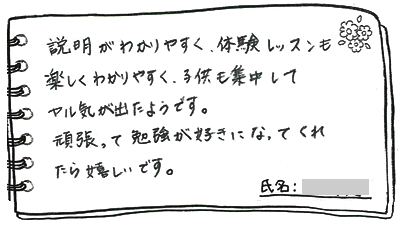 説明がわかりやすく、体験レッスンも
楽しくわかりやすく、子供も集中して
ヤル気が出たようです。
頑張って勉強が好きになってくれ
たら嬉しいです。
氏名: